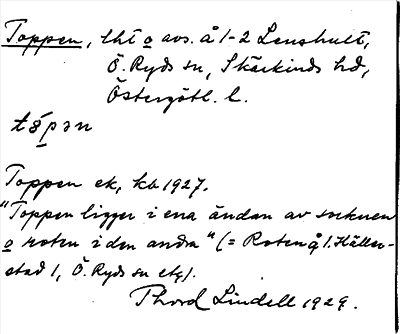 Toppen, lht o avs. å 1-2 Lenshult,
Ö. Ryds sn, Skärkinds hd,
Östergötl. l.
tåpən
Toppen ek, kb 1927.
"Toppen ligger i ena ändan av socknen
o roten i den andra" (= Roten å 1. Häller-
stad 1, Ö. Ryds sn etg).
Thord Lindell 1929.